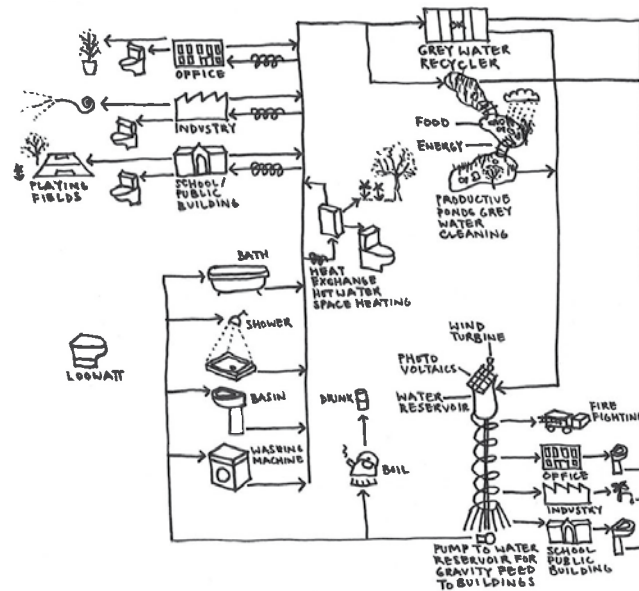 GREY WATER
RECYCLER
OFFICE
INDUSTRY
SCHOOL/
PUBLIC
BUILDING
PLAYING
FIELDS
FOOD
ENERGY
PRODUCTIVE
PONDS GREY
WATER
CLEANING
HEAT
EXCHANGE
HOT WATER
SPACE HEATING
BATH
SHOWER
BASIN
WASHING
MACHINE
LOOWATT
DRINK
BOIL
WIND
TURBINE
PHOTO
VOLTAICS
WATER
RESERVOIR
FIRE
FIGHTING
OFFICE
INDUSTRY
SCHOOL
PUBLIC
BUILDING
PUMP TO WATER
RESERVOIR FOR
GRAVITY FEED
TO BUILDINGS